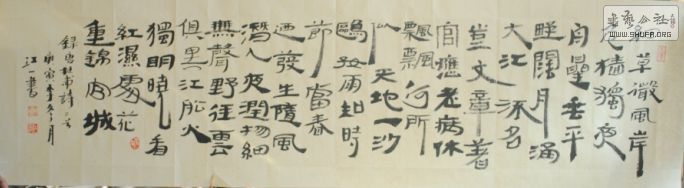 細草微風岸
危檣獨夜
舟星垂平
野闊月涌
大江流名
豈文章著
官應老病休
飄飄何所
似天地一沙
鷗好雨知時
節當春
迺發生隨風
潛入夜潤物細
無聲野徑雲
俱黑江船火
獨明曉看
紅濕處花
重錦官城
錄唐杜甫詩二首
庚寅年冬月
江一書
WWW.SHUFA.ORG